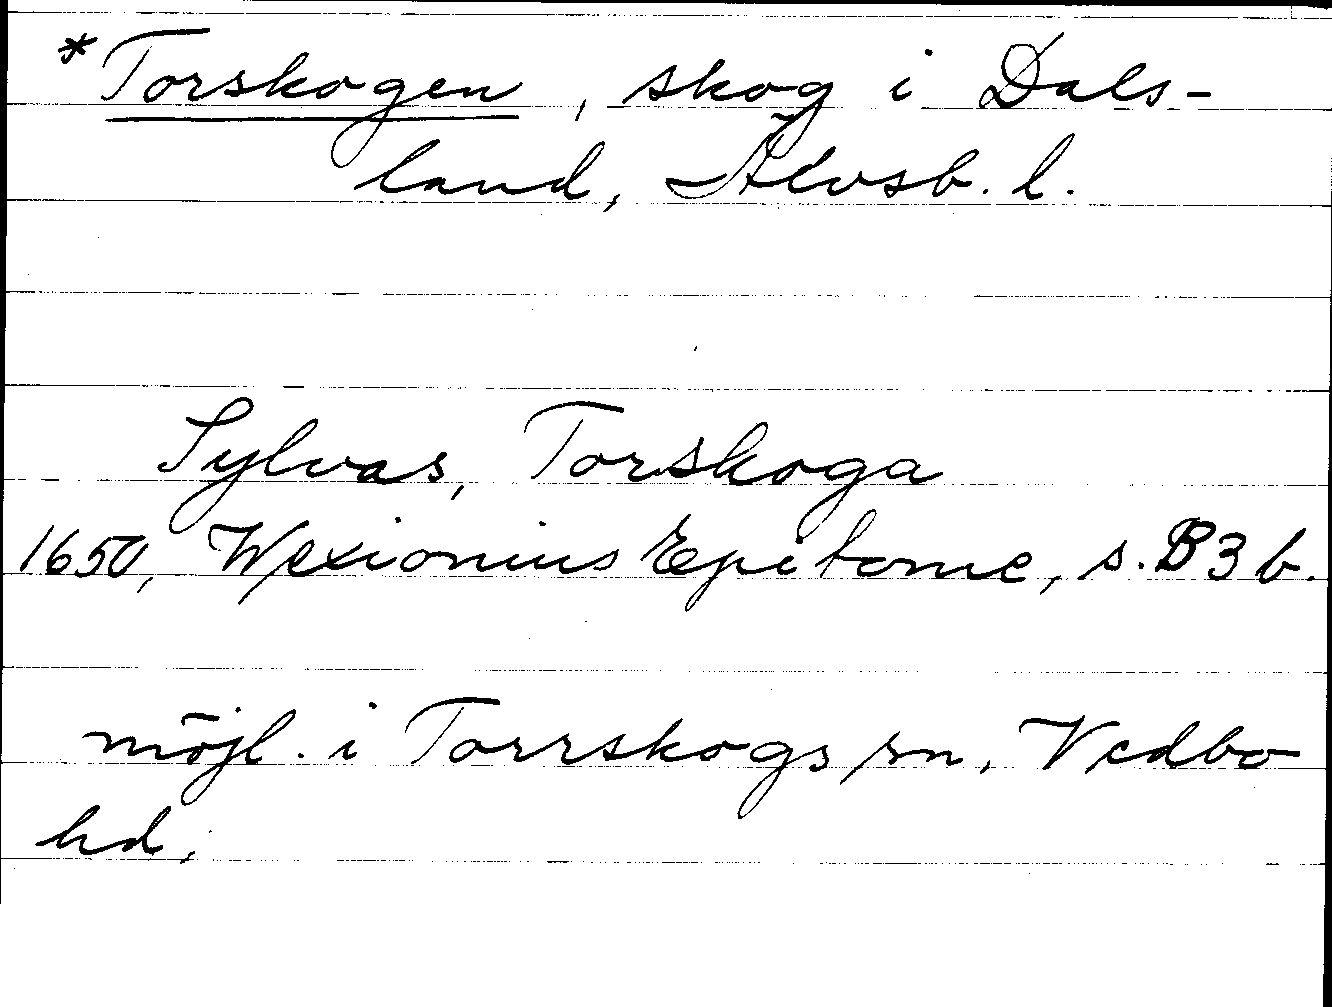 *Torskogen, skog i Dals-
land, Älvsb. l.
Sylvas, Torskoga
1650, Wexionius Epitome, s. B3b.
möjl. i Torrskogs sn, Vedbo
hd.